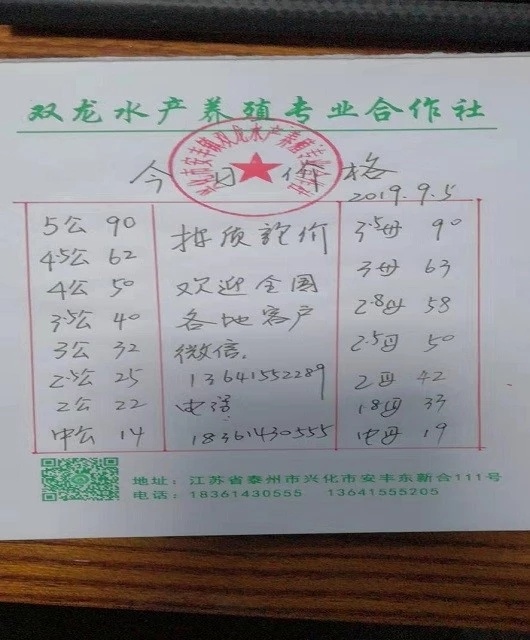 双龙水产养殖专业合作社
今日价格
2019.9.5
5公 90
4.5公 62
4公 50
3.5公 40
3公 32
2.5公 25
2公 22
中公 14
按质论价
欢迎全国
各地客户
微信.
13641552289
电话
18361430555
3.5母 90
3母 63
2.8母 58
2.5母 50
2母 42
1.8母 33
中母 19
地址:江苏省泰州市兴化市安丰东新合111号
电话:18361430555 13641555205